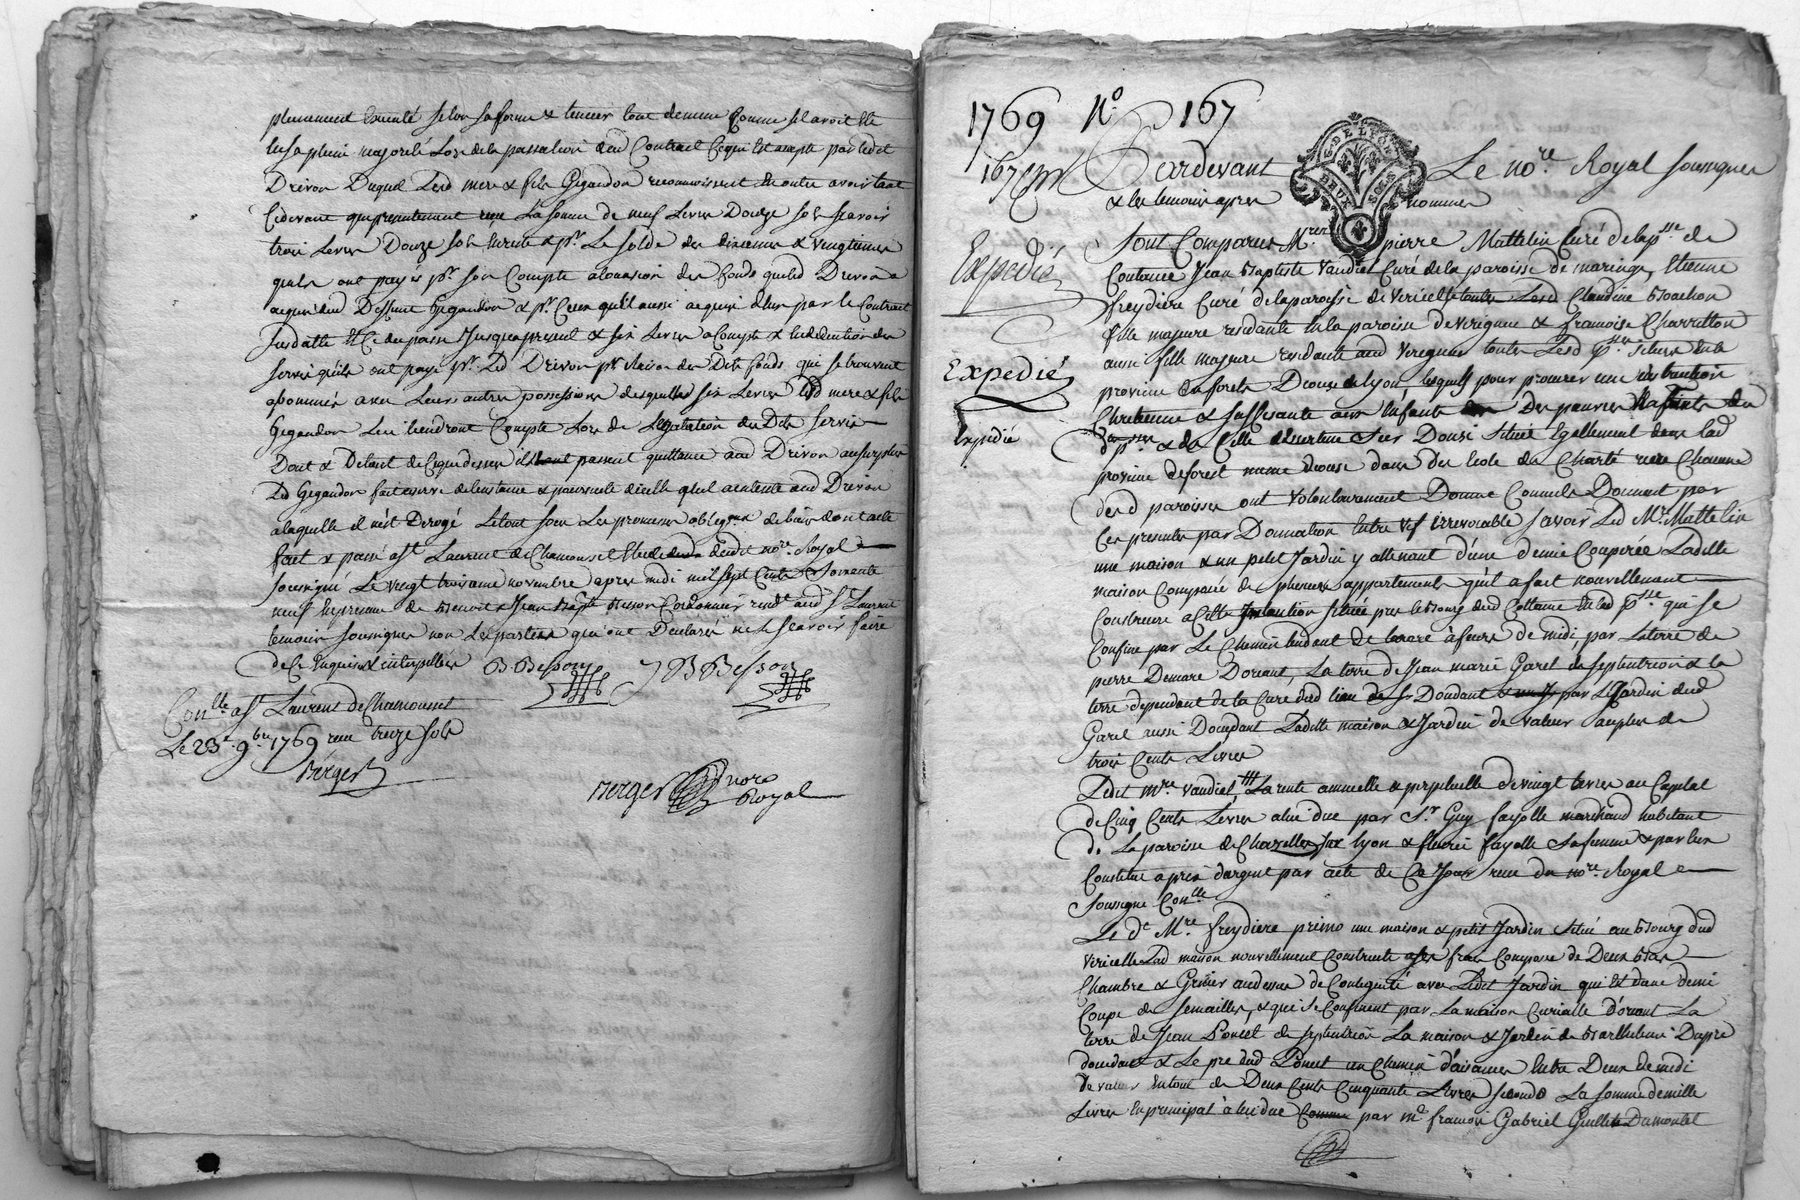 plainement executé selon sa forme & teneur tout de meme comme sil avoit ete
en sa pleine majorité Lors de la passation dud Contract Ce qui Est accepté par ledit
Drivon Duquel Lesd mere & fils Gegaudon reconnoissent En outre avoir
Cidevant que presentement reçu La somme de neuf Livres Douze sols scavoir
trois Livres Douze sols En reste & pr. Le solde des dixiemes & vingtiemes
quils ont payés pr. son Compte a loccasion des fonds que led Drivon a
acquis dud Deffunt Gegaudon & pr. Ceux qu'il a aussi acquis par le Contract
Susdatté Et Ce du passé Jusqua present & six Livres a Compte des
servis quils ont payé pr. Led Drivon pr. Raison des Dits fonds qui se trouvent
abonnés avec Leurs autres possessions desquelles six Livres Lesd mere & fils
Gegaudon Lui tiendront Compte Lors de des Dits Servis
Dont & Detout de Ce que dessus ils passent quittance aud Drivon au surplus
Led Gegaudon
a laquelle il n'est Derogé Le tout sous Les promesses obligons de biens dont acte
Fait & passé a St. Laurent de Chamousset Etude dudit nore. Royal
soussigné Le vingt troisieme novembre apres midi mil sept Cents Soixante
neuf En presence de Benoit & Jean Bapte Besson Cordonniers residts aud St. Laurent
temoins soussignes non Les parties qui ont Declaré ne Le scavoir faire
de Ce Enquis & interpellés B Besson J B Besson
Conlle. a St. Laurent de Chamousset
Le 23e. 9bre. 1769 reçu treize sols
Berger
Berger nore Royal
1769 No. 167
167 Pardevant Le nore. Royal soussigné
& les temoins apres nommés
G. DE LYON DEUX SOLS
Expedié
Expedié
Expedié
Sont Comparus Mres pierre Mattelin Curé de la psse. de
Coutance Jean Baptiste Vaudiel Curé de la paroisse de maringe, Etienne
freydiere Curé de la paroisse de viricelle Claudine Bouchon
fille majeure residante En la paroisse de virigneu & francoise Charretton
aussi fille majeure residante aud virigneu
province du forets Dioceze de Lyon, lesquels pour procurer une instruction
Chretienne & suffisante aux Enfants Des pauvres
province de forest meme dioceze dans des Ecole de Charité riere Chacune
desd paroisses ont volontairement Donné Comme ils Donnent par
Ces presentes par Donnation Entre vifs irrevocable scavoir Led Mr. Mattelin
une maison & un petit Jardin y attenant d'une demie Couperée Ladite
maison Composée de plusieurs appartements qu'il a fait nouvellement
Construire a Cette Intention située pres le Bourg dud Cottance En lad psse. qui se
Confine par Le Chemin tendant de a feurs de midi, par La terre de
pierre Demare Dorient, La terre de Jean marie Garel de septentrion & la
terre dependent de la Cure dud lieu & par Le Jardin dud
Garel aussi Doccident Ladite maison & Jardin de valeur au plus de
trois Cents Livres
Ledit Mre. Vaudiel La rente annuelle & perpetuelle de vingt Livres au Capital
de Cinq Cents Livres a lui due par Sr. Guy fayolle marchand habitant
de La paroisse de Chazelles sur Lyon & fleurie fayolle Sa femme & par Eux
Constitué a prix d'argent par acte de Ce Jour reçu du nore. Royal
Soussigné Conlle.
Le dt. Mre. freydiere primo une maison & petit Jardin situé au Bourg dud
viricelle Lad maison nouvellement Construite a ses frais Composée de Deux Bas
Chambre & Grenier au dessus de Contiguité avec Ledit Jardin qui Est d'une demi
Coupe de Semailles, & qui se Confinent par La maison Curialle D'orient La
terre de Jean Poncet de septentrion La maison & Jardin de Barthelemi Dupré
doccident & Le pré dud Poncet un Chemin d'aisances Entre Deux De midi
de valeur Entout de Deux Cents Cinquante Livres secondo La somme de mille
Livres En principal à lui due par Mr. francois Gabriel Guillet Dumontel